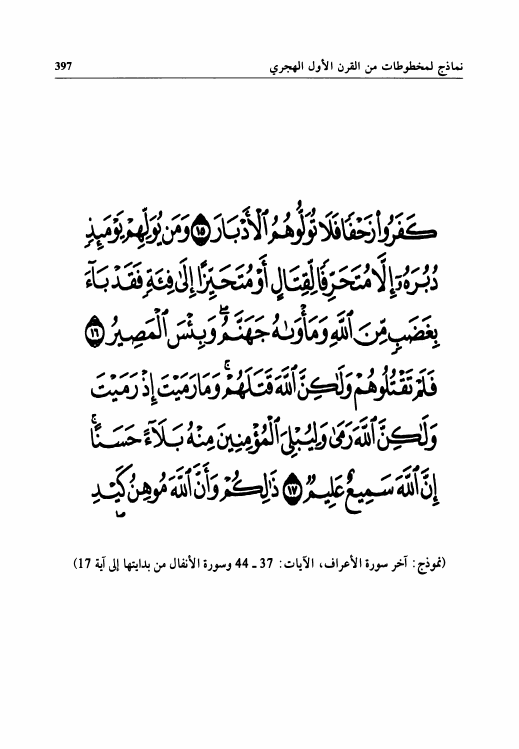 نماذج لمخطوطات من القرن الأول الهجري 397
كَفَرُواْ زَحْفًا فَلَا تُوَلُّوهُمُ ٱلْأَدْبَارَ ١٥ وَمَن يُوَلِّهِمْ يَوْمَئِذٍ
دُبُرَهُۥٓ إِلَّا مُتَحَرِّفًا لِّقِتَالٍ أَوْ مُتَحَيِّزًا إِلَىٰ فِئَةٍ فَقَدْ بَآءَ
بِغَضَبٍ مِّنَ ٱللَّهِ وَمَأْوَىٰهُ جَهَنَّمُ ۖ وَبِئْسَ ٱلْمَصِيرُ ١٦
فَلَمْ تَقْتُلُوهُمْ وَلَٰكِنَّ ٱللَّهَ قَتَلَهُمْ ۚ وَمَا رَمَيْتَ إِذْ رَمَيْتَ
وَلَٰكِنَّ ٱللَّهَ رَمَىٰ ۚ وَلِيُبْلِىَ ٱلْمُؤْمِنِينَ مِنْهُ بَلَآءً حَسَنًا ۚ
إِنَّ ٱللَّهَ سَمِيعٌ عَلِيمٌ ١٧ ذَٰلِكُمْ وَأَنَّ ٱللَّهَ مُوهِنُ كَيْدِ
(نموذج: آخر سورة الأعراف، الآيات: 37 ـ 44 وسورة الأنفال من بدايتها إلى آية 17)